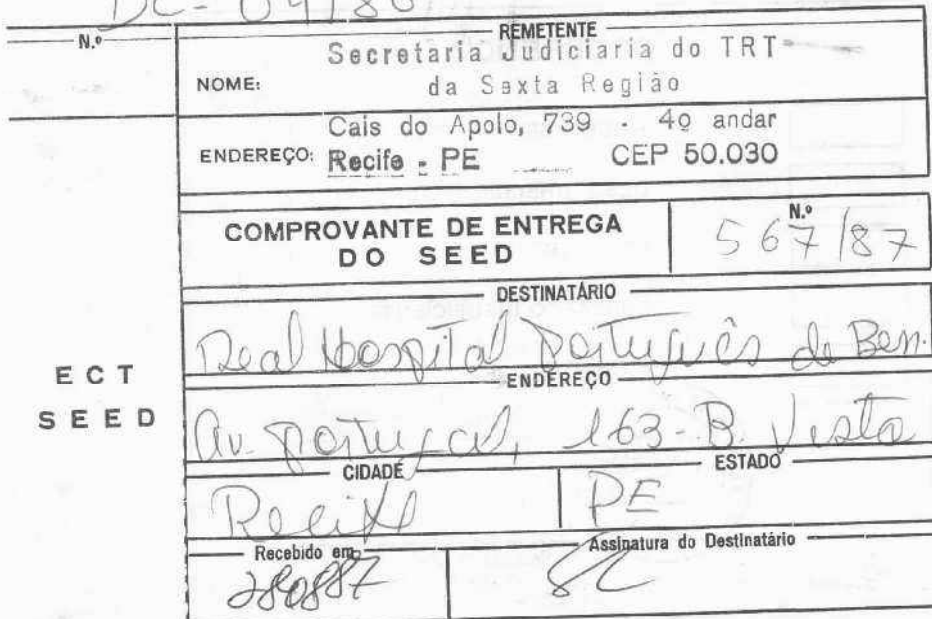 DC- 04/86
N.º
REMETENTE
NOME: Secretaria Judiciaria do TRT
da Sexta Região
ENDEREÇO: Cais do Apolo, 739 - 4º andar
Recife - PE CEP 50.030
COMPROVANTE DE ENTREGA
DO SEED
N.º
567/87
DESTINATÁRIO
Real Hospital Português de Ben.
ECT
SEED
ENDEREÇO
Av. Portugal, 163 - B. Vista
CIDADE
Recife
ESTADO
PE
Recebido em
280887
Assinatura do Destinatário